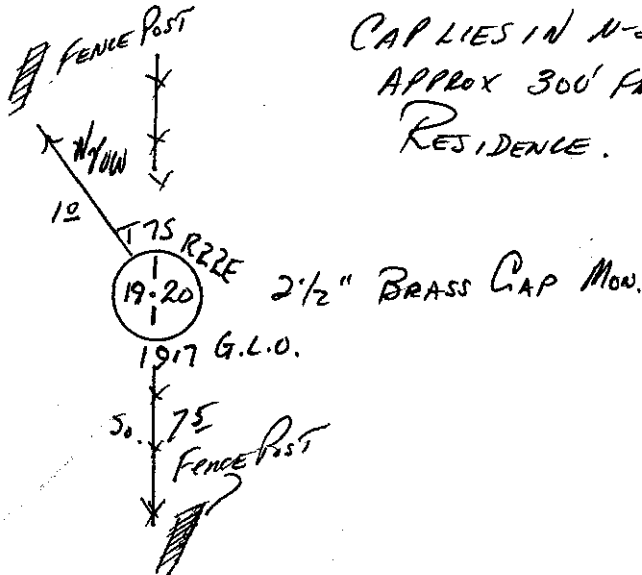 FENCE POST
CAP LIES IN N-
APPROX 300'
RESIDENCE.
1º
T7S R22E
19·20
2 1/2" BRASS CAP MON.
1917 G.L.O.
So. 7 5
FENCE POST